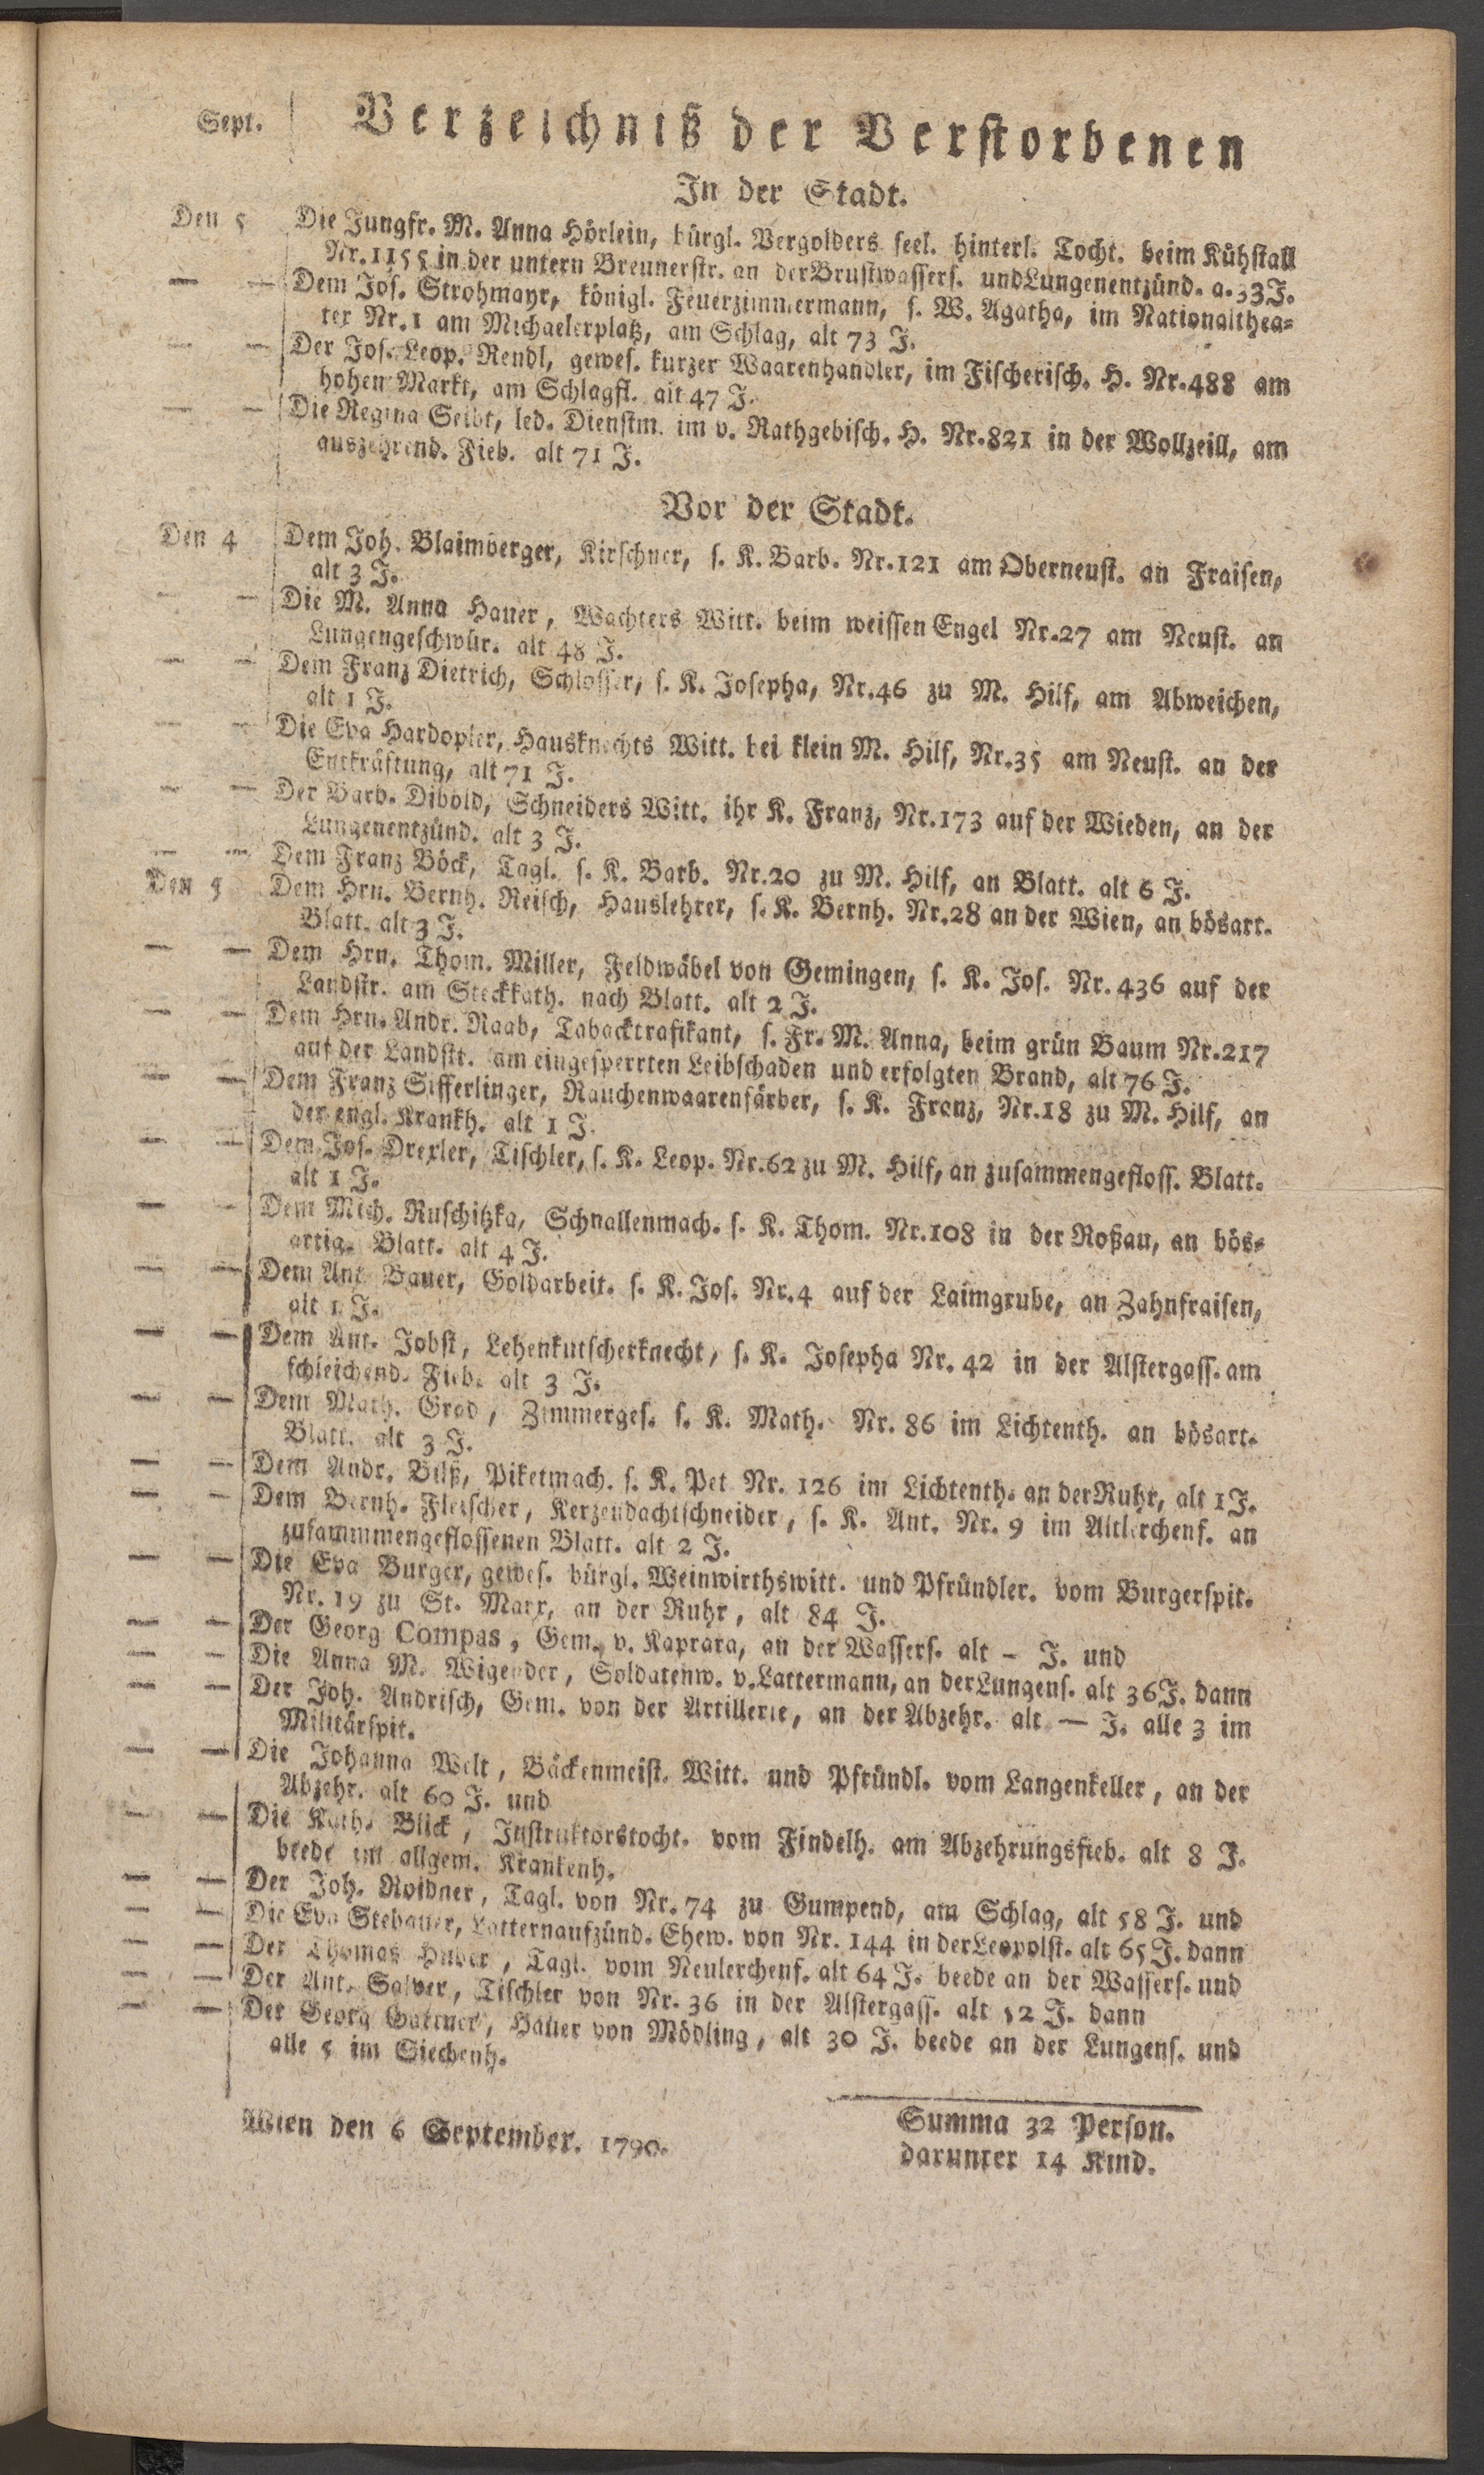 Sept. Verzeichniß der Verstorbenen
In der Stadt.
Den 5 Die Jungfr. M. Anna Hörlein, bürgl. Vergolders seel. hinterl. Tocht. beim Kühstall
Nr. 1155 in der untern Breunerstr. an der Brustwassers. und Lungenentzünd. a. 33 J.
— — Dem Jos. Strohmayr, königl. Feuerzimmermann, s. W. Agatha, im Nationalthea-
ter Nr. 1 am Michaelerplatz, am Schlag, alt 73 J.
— — Der Jos. Leop. Rendl, gewes. kurzer Waarenhandler, im Fischerisch. H. Nr. 488 am
hohen Markt, am Schlagfl. alt 47 J.
— — Die Regina Seibt, led. Dienstm. im v. Rathgebisch. H. Nr. 821 in der Wollzeill, am
auszehrend. Fieb. alt 71 J.
Vor der Stadt.
Den 4 Dem Joh. Blaimberger, Kirschner, s. K. Barb. Nr. 121 am Oberneust. an Fraisen,
alt 3 J.
— — Die M. Anna Hauer, Wachters Witt. beim weissen Engel Nr. 27 am Neust. an
Lungengeschwür. alt 48 J.
— — Dem Franz Dietrich, Schlosser, s. K. Josepha, Nr. 46 zu M. Hilf, am Abweichen,
alt 1 J.
— — Die Eva Hardopler, Hausknechts Witt. bei klein M. Hilf, Nr. 35 am Neust. an der
Entkräftung, alt 71 J.
— — Der Barb. Dibold, Schneiders Witt. ihr K. Franz, Nr. 173 auf der Wieden, an der
Lungenentzünd. alt 3 J.
— — Dem Franz Böck, Tagl. s. K. Barb. Nr. 20 zu M. Hilf, an Blatt. alt 6 J.
Den 5 Dem Hrn. Bernh. Reisch, Hauslehrer, s. K. Bernh. Nr. 28 an der Wien, an bösart.
Blatt. alt 3 J.
— — Dem Hrn. Thom. Miller, Feldwäbel von Gemingen, s. K. Jos. Nr. 436 auf der
Landstr. am Steckkath. nach Blatt. alt 2 J.
— — Dem Hrn. Andr. Raab, Tabacktrafikant, s. Fr. M. Anna, beim grün Baum Nr. 217
auf der Landstr. am eingesperrten Leibschaden und erfolgten Brand, alt 76 J.
— — Dem Franz Sifferlinger, Rauchenwaarenfärber, s. K. Franz, Nr. 18 zu M. Hilf, an
der engl. Krankh. alt 1 J.
— — Dem Jos. Drexler, Tischler, s. K. Leop. Nr. 62 zu M. Hilf, an zusammengefloss. Blatt.
alt 1 J.
— — Dem Mich. Ruschitzka, Schnallenmach. s. K. Thom. Nr. 108 in der Roßau, an bös-
artig. Blatt. alt 4 J.
— — Dem Ant. Bauer, Goldarbeit. s. K. Jos. Nr. 4 auf der Laimgrube, an Zahnfraisen,
alt 1 J.
— — Dem Ant. Jobst, Lehenkutscherknecht, s. K. Josepha Nr. 42 in der Alstergass. am
schleichend. Fieb. alt 3 J.
— — Dem Math. Grod, Zimmerges. s. K. Math. Nr. 86 im Lichtenth. an bösart.
Blatt. alt 3 J.
— — Dem Andr. Bilß, Piketmach. s. K. Pet Nr. 126 im Lichtenth. an der Ruhr, alt 1 J.
— — Dem Bernh. Fletscher, Kerzendachtschneider, s. K. Ant. Nr. 9 im Altlerchenf. an
zusammmengeflossenen Blatt. alt 2 J.
— — Die Eva Burger, gewes. bürgl. Weinwirthswitt. und Pfründler. vom Burgerspit.
Nr. 19 zu St. Marx, an der Ruhr, alt 84 J.
— — Der Georg Compas, Gem. v. Kaprara, an der Wassers. alt – J. und
— — Die Anna M. Wigender, Soldatenw. v. Lattermann, an der Lungens. alt 36 J. dann
— — Der Joh. Andrisch, Gem. von der Artillerie, an der Abzehr. alt — J. alle 3 im
Militärspit.
— — Die Johanna Welt, Bäckenmeist. Witt. und Pfründl. vom Langenkeller, an der
Abzehr. alt 60 J. und
— — Die Kath. Blick, Instruktorstocht. vom Findelh. am Abzehrungsfieb. alt 8 J.
beede im allgem. Krankenh.
— — Der Joh. Roidner, Tagl. von Nr. 74 zu Gumpend, am Schlag, alt 58 J. und
— — Die Eva Stebauer, Latternaufzünd. Ehew. von Nr. 144 in der Leopolst. alt 65 J. dann
— — Der Thomas Huber, Tagl. vom Neulerchenf. alt 64 J. beede an der Wassers. und
— — Der Ant. Salver, Tischler von Nr. 36 in der Alstergass. alt 52 J. dann
— — Der Georg Gattner, Hauer von Mödling, alt 30 J. beede an der Lungens. und
alle 5 im Siechenh.
Wien den 6 September. 1790.
Summa 32 Person.
darunter 14 Kind.